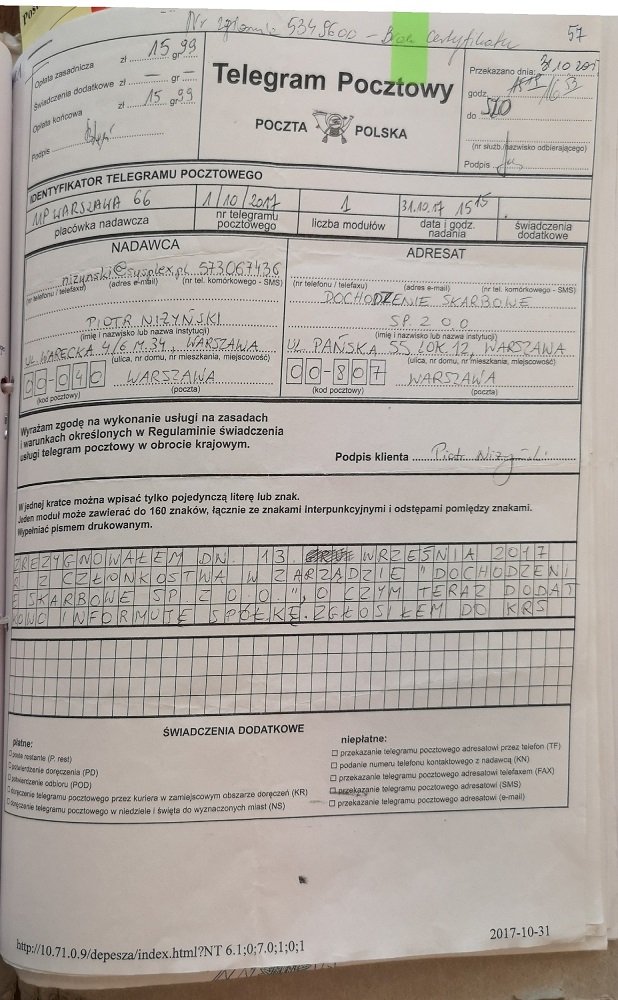 Nr 5349600 – Brak Certyfikatu 57
Opłata zasadnicza zł 15 gr 99
Świadczenia dodatkowe zł — gr —
Opłata końcowa zł 15 gr 99
Podpis
Telegram Pocztowy
POCZTA POLSKA
Przekazano dnia:
godz.
do
(nr służb./nazwisko odbierającego)
Podpis
IDENTYFIKATOR TELEGRAMU POCZTOWEGO
MP WARSZAWA 66
placówka nadawcza
1/10/2017
nr telegramu pocztowego
1
liczba modułów
31.10.17 15 15
data i godz. nadania
świadczenia dodatkowe
NADAWCA
nizynski@sysplex.pl 573067436
(nr telefonu / telefaxu) (adres e-mail) (nr tel. komórkowego - SMS)
PIOTR NIŻYŃSKI
(imię i nazwisko lub nazwa instytucji)
UL. WARECKA 4/6 M.34, WARSZAWA
(ulica, nr domu, nr mieszkania, miejscowość)
00-040 WARSZAWA
(kod pocztowy) (poczta)
ADRESAT
(nr telefonu / telefaxu) (adres e-mail) (nr tel. komórkowego - SMS)
DOCHODZENIE SKARBOWE
SP. Z O.O.
(imię i nazwisko lub nazwa instytucji)
UL. PAŃSKA 55 LOK. 12, WARSZAWA
(ulica, nr domu, nr mieszkania, miejscowość)
00-807 WARSZAWA
(kod pocztowy) (poczta)
Wyrażam zgodę na wykonanie usługi na zasadach
i warunkach określonych w Regulaminie świadczenia
usługi telegram pocztowy w obrocie krajowym.
Podpis klienta Piotr Niżyński
W jednej kratce można wpisać tylko pojedynczą literę lub znak.
Jeden moduł może zawierać do 160 znaków, łącznie ze znakami interpunkcyjnymi i odstępami pomiędzy znakami.
Wypełniać pismem drukowanym.
ZREZYGNOWAŁEM DN. 13 WRZEŚNIA 2017
R. Z CZŁONKOSTWA W ZARZĄDZIE "DOCHODZENI
E SKARBOWE SP. Z O.O.", O CZYM TERAZ DODAT
KOWO INFORMUJĘ SPÓŁKĘ. ZGŁOSIŁEM DO KRS
ŚWIADCZENIA DODATKOWE
płatne:
poste restante (P. rest)
potwierdzenie doręczenia (PD)
potwierdzenie odbioru (POD)
doręczenie telegramu pocztowego przez kuriera w zamiejscowym obszarze doręczeń (KR)
doręczenie telegramu pocztowego w niedziele i święta do wyznaczonych miast (NS)
niepłatne:
przekazanie telegramu pocztowego adresatowi przez telefon (TF)
podanie numeru telefonu kontaktowego z nadawcą (KN)
przekazanie telegramu pocztowego adresatowi telefaxem (FAX)
przekazanie telegramu pocztowego adresatowi (SMS)
przekazanie telegramu pocztowego adresatowi (e-mail)
http://10.71.0.9/depesza/index.html?NT 6.1;0;7.0;1;0;1 2017-10-31